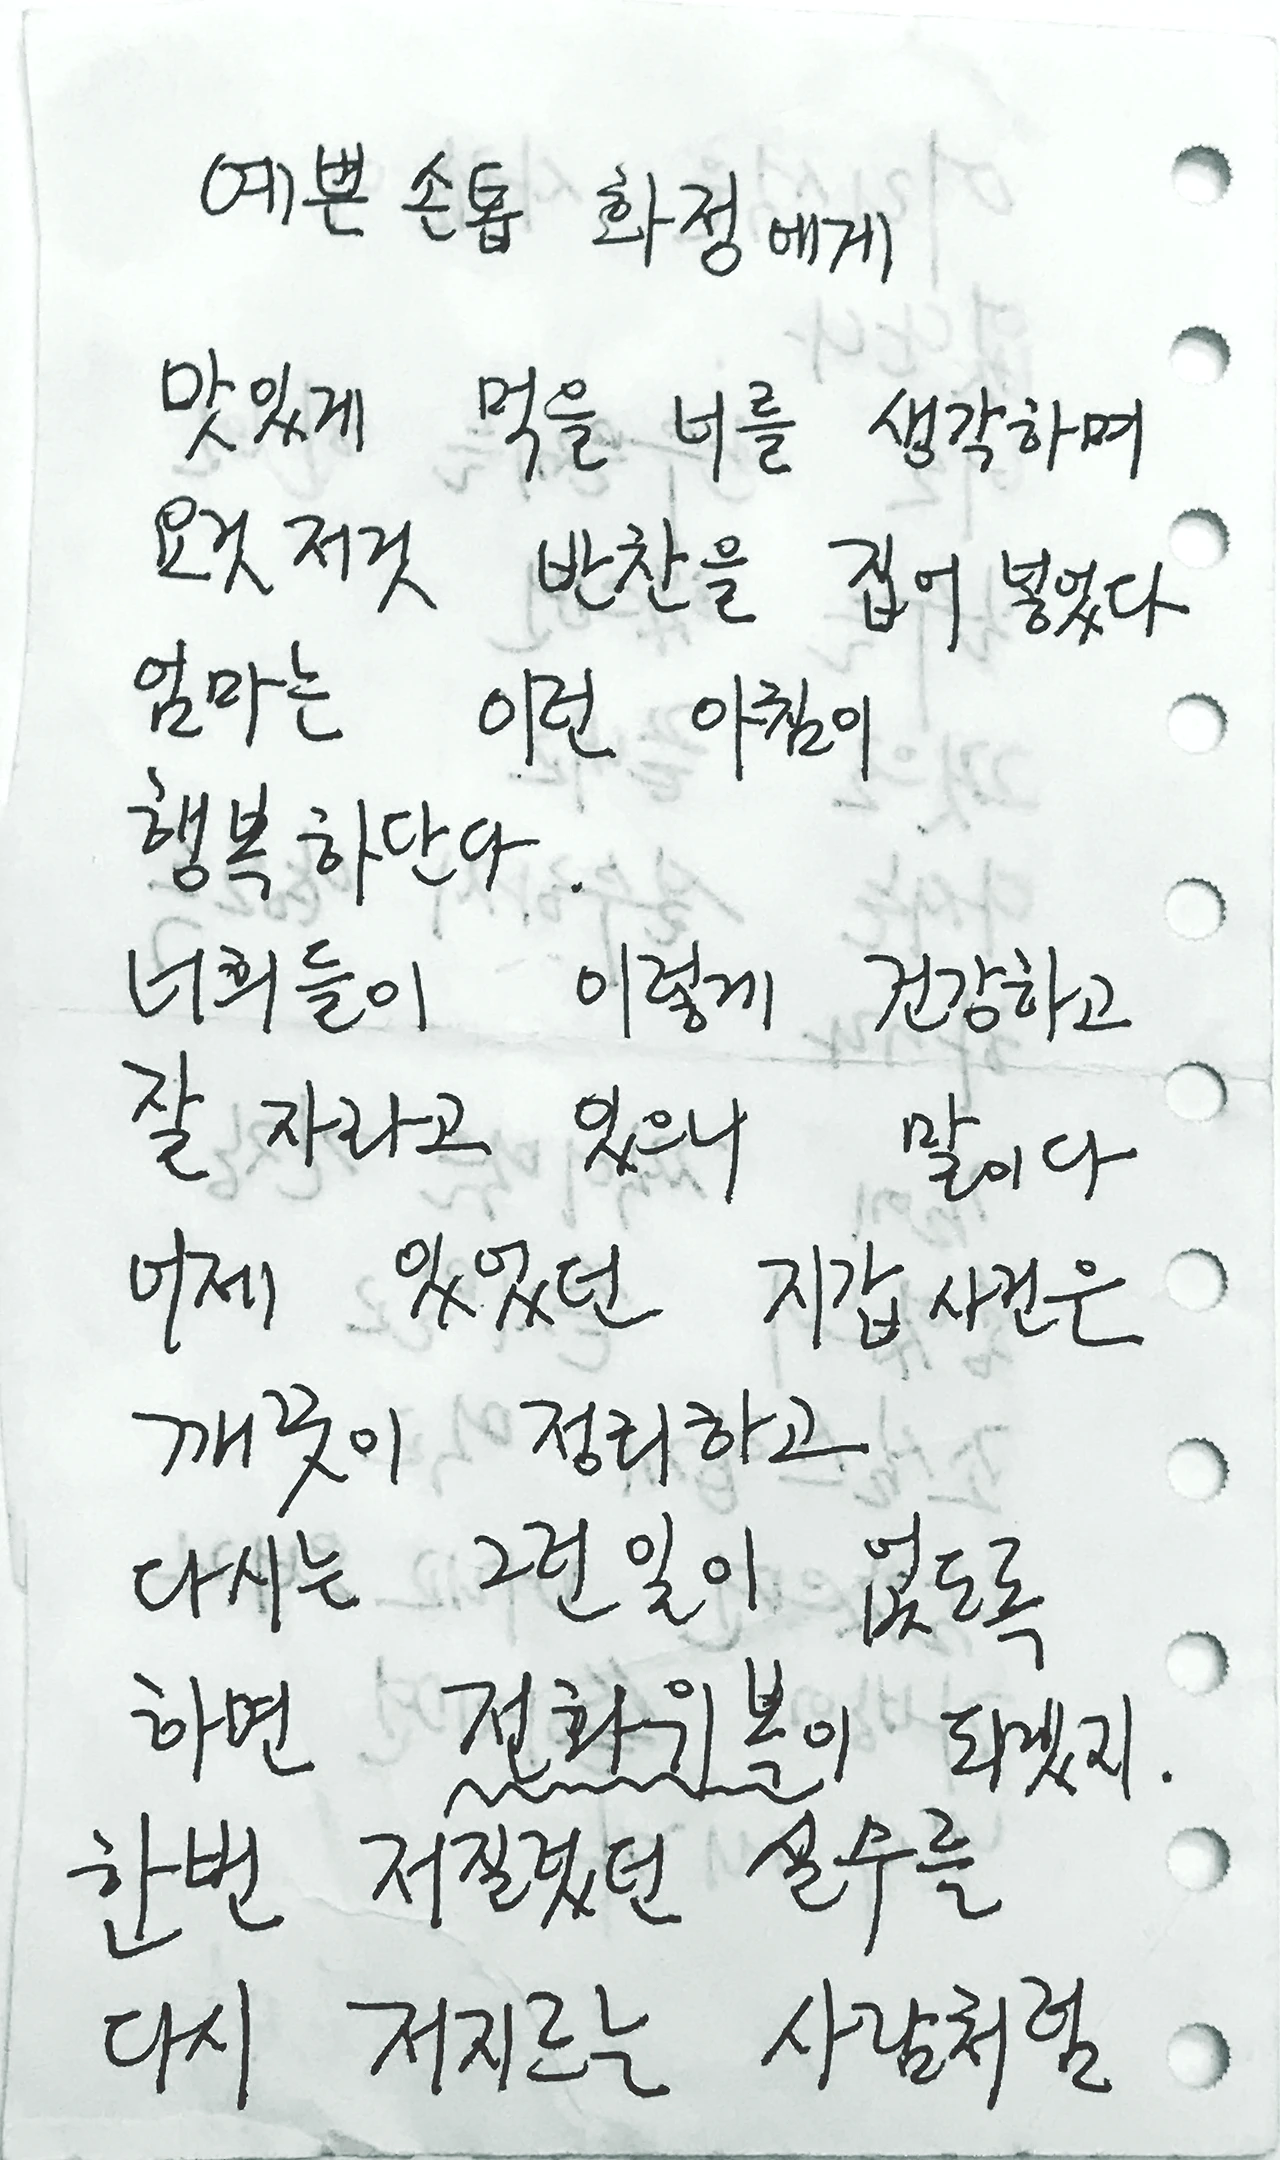 예쁜 손톱 화정에게
맛있게 먹을 너를 생각하며
요것 저것 반찬을 집어 넣었다
엄마는 이런 아침이
행복하단다.
너희들이 이렇게 건강하고
잘 자라고 있으니 말이다
어제 있었던 지갑사건은
깨끗이 정리하고
다시는 그런일이 없도록
하면 전화위복이 되겠지.
한번 저질렀던 실수를
다시 저지르는 사람처럼